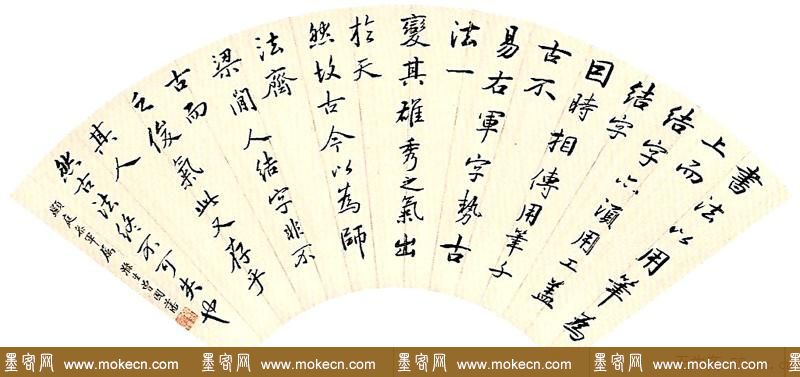 書法以用筆為
上而
結字亦須用工蓋
結字
因時相傳用筆千
古不
易右軍字勢古
法一
變其雄秀之氣出
於天
然故古今以為師
法齊
梁間人結字非不
古而
乏俊氣此又存乎
其人
然古法終不可失也
滌生曾國藩
墨客网 www.mokecn.com 墨客网 www.mokecn.com 墨客网 www.mokecn.com 墨客网 www.mokecn.com